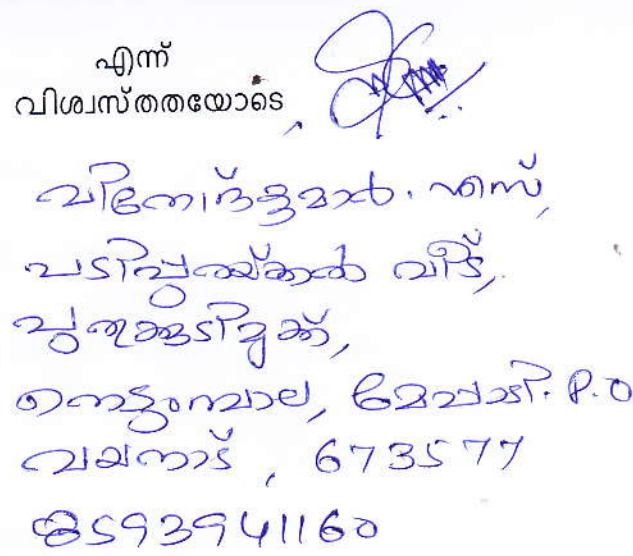 എന്ന്
വിശ്വസ്തതയോടെ,
വിനോദ്കുമാർ. എസ്,
പടിപ്പുരയ്ക്കൽ വീട്,
പുതുക്കുടിമുക്ക്,
നെടുമ്പാല, മേപ്പാടി. P.O
വയനാട്, 673577
8593941160